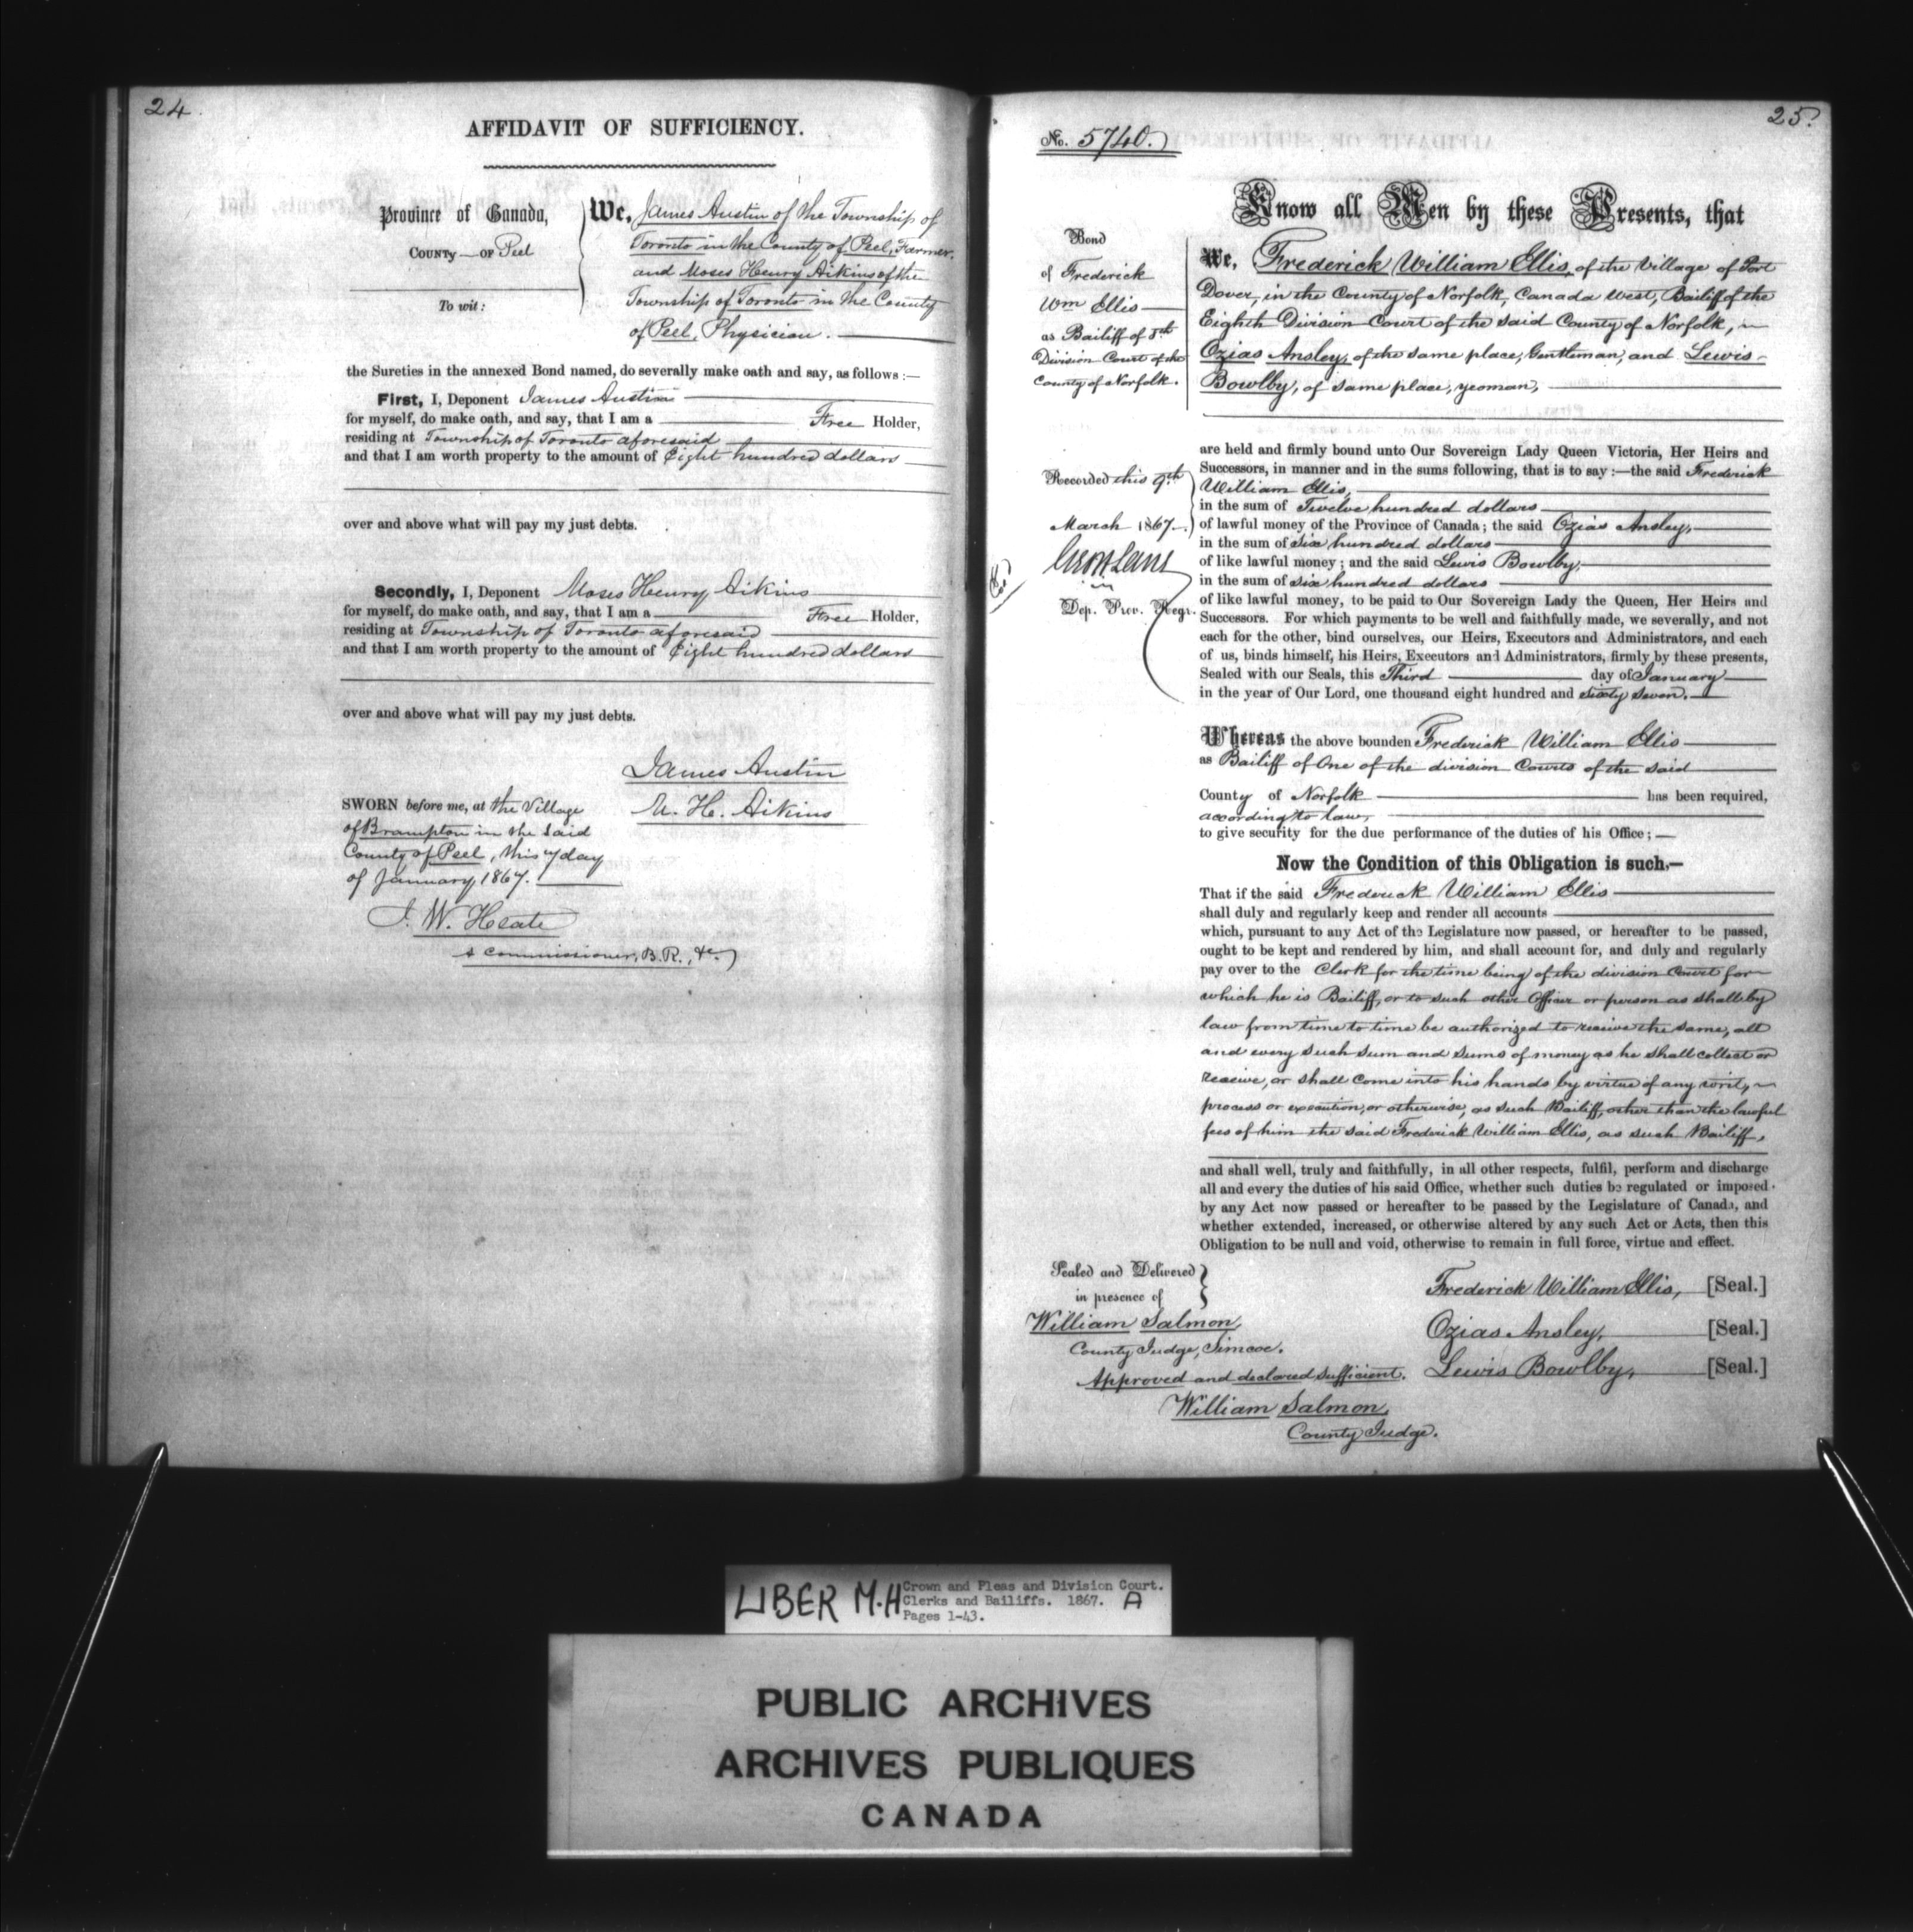 24.
AFFIDAVIT OF SUFFICIENCY.
Province of Canada,
COUNTY — OF Peel
To wit:
We, James Austin of the Township of
Toronto in the County of Peel, Farmer,
and Moses Henry Aikins of the
Township of Toronto in the County
of Peel, Physician.
the Sureties in the annexed Bond named, do severally make oath and say, as follows :—
First, I, Deponent James Austin
for myself, do make oath, and say, that I am a Free Holder,
residing at Township of Toronto aforesaid
and that I am worth property to the amount of Eight hundred dollars
over and above what will pay my just debts.
Secondly, I, Deponent Moses Henry Aikins
for myself, do make oath, and say, that I am a Free Holder,
residing at Township of Toronto aforesaid
and that I am worth property to the amount of Eight hundred dollars
over and above what will pay my just debts.
James Austin
M. H. Aikins
SWORN before me, at the Village
of Brampton in the said
County of Peel, this 7 day
of January 1867.
J. W. Heate
A Commissioner, B.R., &c.
25.
No. 5740.
Know all Men by these Presents, that
Bond
of Frederick
Wm Ellis
as Bailiff of 8th
Division Court of the
County of Norfolk.
We, Frederick William Ellis, of the Village of Port
Dover, in the County of Norfolk, Canada West, Bailiff of the
Eighth Division Court of the said County of Norfolk,
Ozias Ansley, of the same place, Gentleman, and Lewis
Bowlby, of same place, yeoman,
are held and firmly bound unto Our Sovereign Lady Queen Victoria, Her Heirs and
Successors, in manner and in the sums following, that is to say :—the said Frederick
William Ellis,
in the sum of Twelve hundred dollars
of lawful money of the Province of Canada; the said Ozias Ansley,
in the sum of six hundred dollars
of like lawful money; and the said Lewis Bowlby,
in the sum of six hundred dollars
of like lawful money, to be paid to Our Sovereign Lady the Queen, Her Heirs and
Successors. For which payments to be well and faithfully made, we severally, and not
each for the other, bind ourselves, our Heirs, Executors and Administrators, and each
of us, binds himself, his Heirs, Executors and Administrators, firmly by these presents,
Sealed with our Seals, this Third day of January
in the year of Our Lord, one thousand eight hundred and sixty seven.
Recorded this 9th
March 1867.
Dep. Prov. Regr.
Whereas the above bounden Frederick William Ellis
as Bailiff of One of the division Courts of the said
County of Norfolk has been required,
according to law,
to give security for the due performance of the duties of his Office; —
Now the Condition of this Obligation is such,—
That if the said Frederick William Ellis
shall duly and regularly keep and render all accounts
which, pursuant to any Act of the Legislature now passed, or hereafter to be passed,
ought to be kept and rendered by him, and shall account for, and duly and regularly
pay over to the Clerk for the time being of the division Court for
which he is Bailiff, or to such other Officer or person as shall by
law from time to time be authorized to receive the same, all
and every such sum and sums of money as he shall collect or
receive, or shall come into his hands by virtue of any writ,
process or execution, or otherwise, as such Bailiff, other than the lawful
fees of him the said Frederick William Ellis, as such Bailiff,
and shall well, truly and faithfully, in all other respects, fulfil, perform and discharge
all and every the duties of his said Office, whether such duties be regulated or imposed
by any Act now passed or hereafter to be passed by the Legislature of Canada, and
whether extended, increased, or otherwise altered by any such Act or Acts, then this
Obligation to be null and void, otherwise to remain in full force, virtue and effect.
Sealed and Delivered
in presence of
William Salmon,
County Judge, Simcoe.
Approved and declared sufficient.
William Salmon,
County Judge.
Frederick William Ellis, [Seal.]
Ozias Ansley, [Seal.]
Lewis Bowlby, [Seal.]
LIBER M.H
Crown and Pleas and Division Court.
Clerks and Bailiffs. 1867. A
Pages 1-43.
PUBLIC ARCHIVES
ARCHIVES PUBLIQUES
CANADA